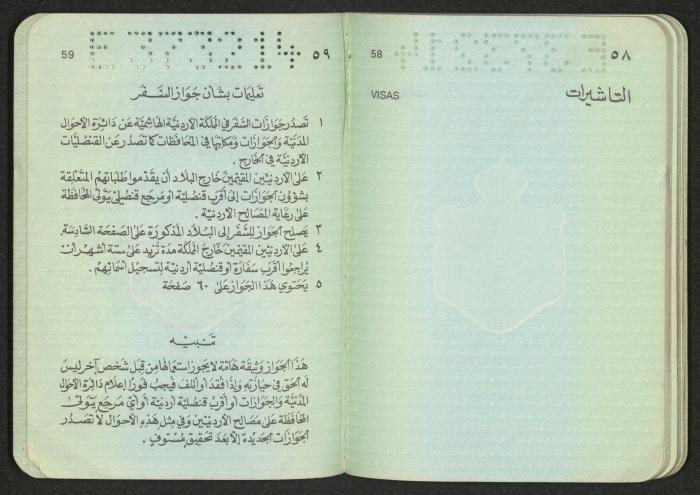 ٥٨
58
التأشيرات
VISAS
59
٥٩
تعليمات بشأن جواز السفر
١ تصدر جوازات السفر في المملكة الأردنية الهاشمية عن دائرة الأحوال
المدنية والجوازات ومكاتبها في المحافظات كما تصدر عن القنصليات
الأردنية في الخارج .
٢ على الأردنيين المقيمين خارج البلاد أن يقدموا طلباتهم المتعلقة
بشؤون الجوازات إلى أقرب قنصلية أو مرجع قنصلي يتولى المحافظة
على رعاية المصالح الأردنية .
٣ يصلح الجواز للسفر إلى البلاد المذكورة على الصفحة السادسة.
٤ على الأردنيين المقيمين خارج المملكة مدة تزيد على ستة أشهر أن
يراجعوا أقرب سفارة أو قنصلية أردنية لتسجيل أسمائهم .
٥ يحتوي هذا الجواز على ٦٠ صفحة
تنبيه
هذا الجواز وثيقة هامة لا يجوز استعمالها من قبل شخص آخر ليس
له الحق في حيازته وإذا فقد أو أتلف فيجب فوراً إعلام دائرة الأحوال
المدنية والجوازات أو أقرب قنصلية أردنية أو أي مرجع يتولى
المحافظة على مصالح الأردنيين وفي مثل هذه الأحوال لا تصدر
الجوازات الجديدة إلا بعد تحقيق مستوفٍ .